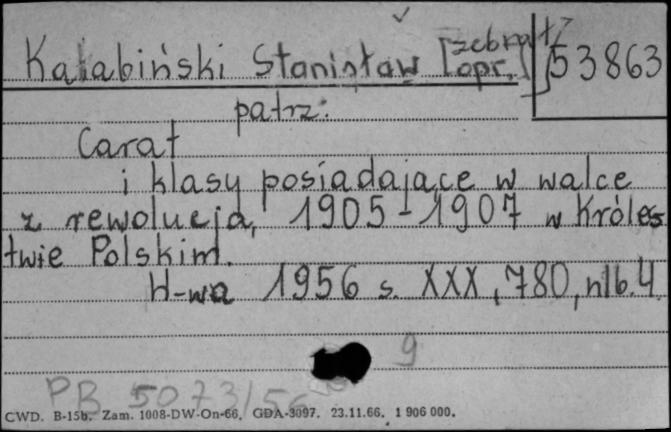 Kałabiński Stanisław [zebrał, opr.] 53863
patrz:
Carat
i klasy posiadające w walce
z rewolucją, 1905-1907 w Króles
twie Polskim.
W-wa 1956 s. XXX, 780, nlb. 4.
9
PB 5073/56
CWD. B-15b. Zam. 1008-DW-On-66. GDA-3097. 23.11.66. 1 906 000.